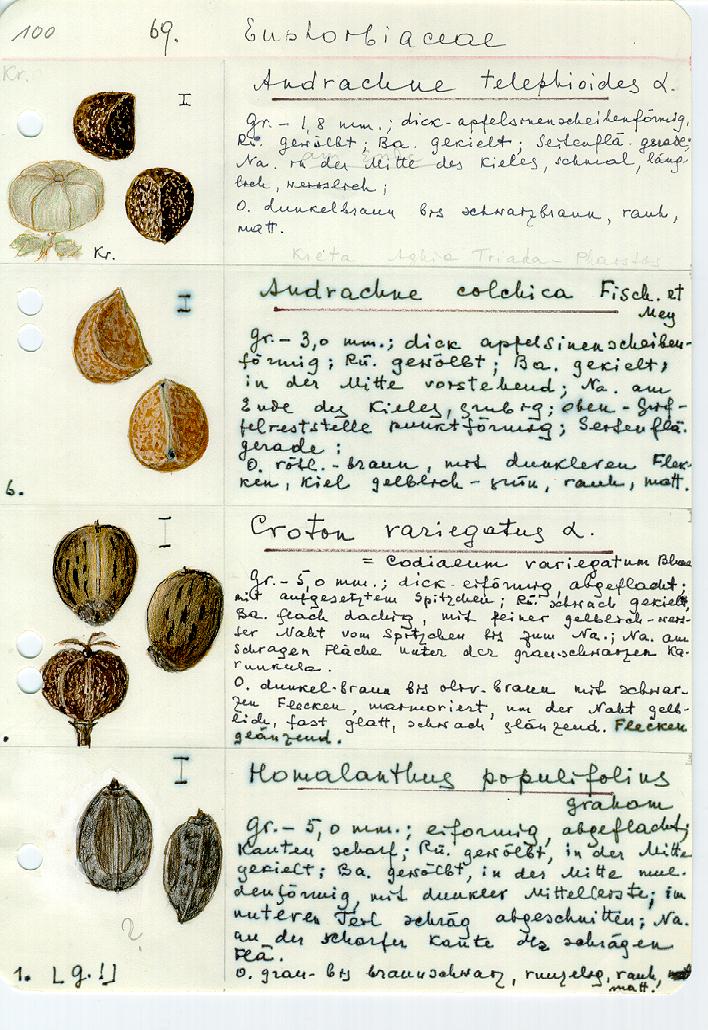 100 69. Euphorbiaceae
Kr.
I
Andrachne telephioides L.
Gr. - 1,8 mm.; dick-apfelsinenscheibenförmig;
Rü. gewölbt; Ba. gekielt; Seitenflä. gerade;
Na. in der Mitte des Kieles, schmal, läng-
lich, weisslich;
O. dunkelbraun bis schwarzbraun, rauh,
matt.
Kr.
Kreta Aghia Triada - Phaistos
I
Andrachne colchica Fisch. et
Mey
Gr. - 3,0 mm.; dick apfelsinenscheiben-
förmig; Rü. gewölbt; Ba. gekielt,
in der Mitte vorstehend; Na. am
Ende des Kieles, grubig; oben - Grif-
felreststelle punktförmig; Seitenflä.
gerade;
O. rötl.-braun, mit dunkleren Flek-
ken, Kiel gelblich-grün, rauh, matt.
6.
I
Croton variegatus L.
= Codiaeum variegatum Blume
Gr. - 5,0 mm.; dick-eiförmig, abgeflacht;
mit aufgesetztem Spitzchen; Rü. schwach gekielt,
Ba. flach dachig, mit feiner gelblich-weis-
ser Naht vom Spitzchen bis zum Na.; Na. am
schrägen Fläche unter der grauschwarzen Ka-
runkula.
O. dunkel-braun bis oliv-braun mit schwar-
zen Flecken, marmoriert, um der Naht gelb-
lich, fast glatt, schwach glänzend. Flecken
glänzend.
I
Homalanthus populifolius
Graham
Gr. - 5,0 mm.; eiförmig, abgeflacht;
Kanten scharf; Rü. gewölbt, in der Mitte
gekielt; Ba. gewölbt, in der Mitte mul-
denförmig, mit dunkler Mittelleiste; im
unteren Teil schräg abgeschnitten; Na.
an der scharfer Kante des schrägen
Flä.
O. grau- bis braunschwarz, runzelig, rauh,
matt.
?
1. [g.!]